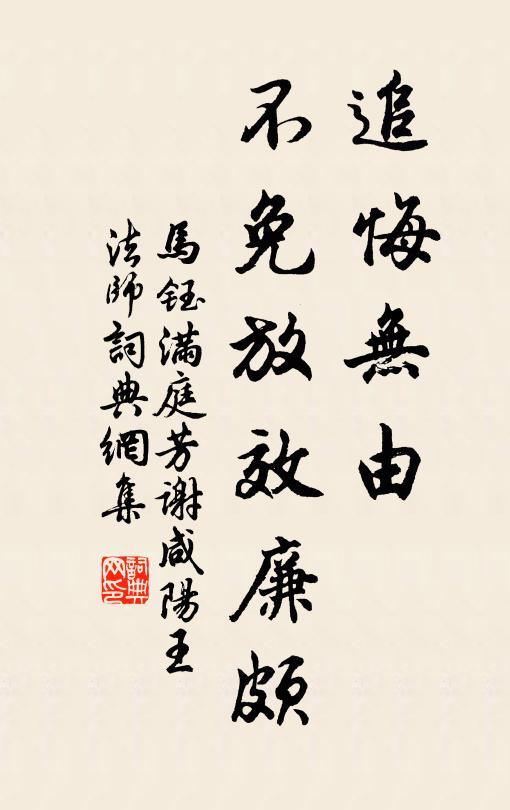 追悔無由
不免放效廉頗
馬鈺滿庭芳謝咸陽王
法師詞典網集
詞典
网印